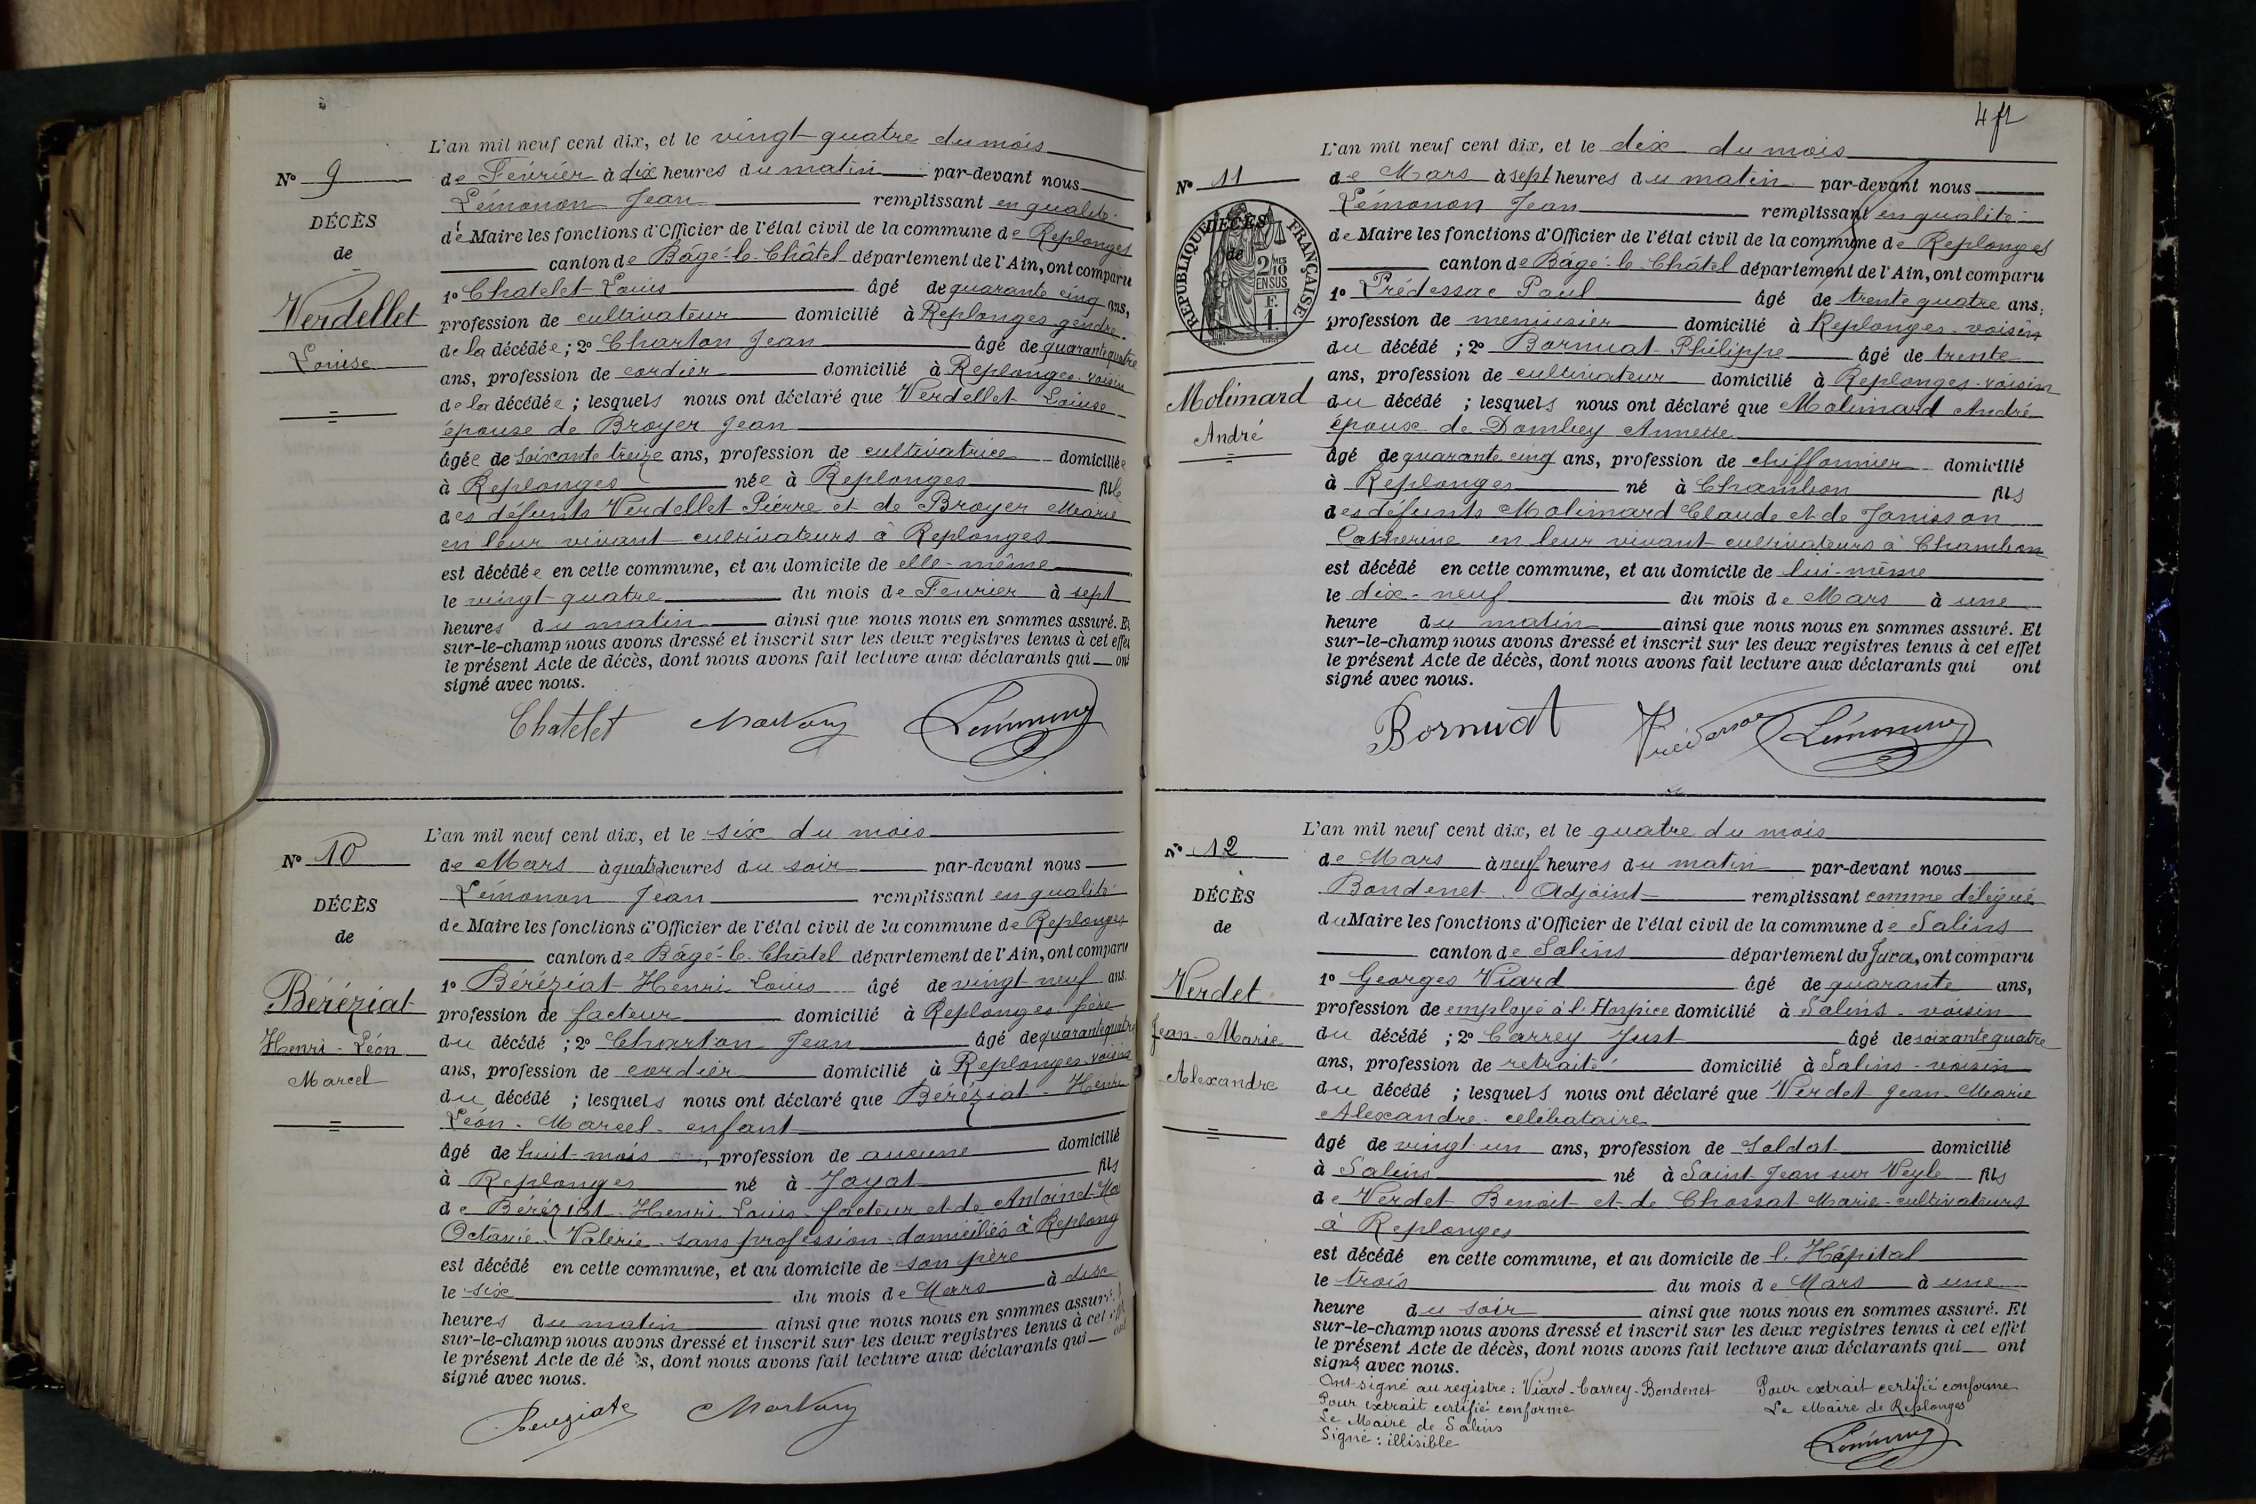 L'an mil neuf cent dix, et le vingt-quatre du mois
N° 9
de Février à dix heures du matin par-devant nous
Lémonon Jean remplissant en qualité
DÉCÈS
de
de Maire les fonctions d'Officier de l'état civil de la commune de Replonges
canton de Bâgé-le-Châtel département de l'Ain, ont comparu
1° Chatelet Louis âgé de quarante cinq ans,
Verdellet
Louise
profession de cultivateur domicilié à Replonges gendre
de la décédée ; 2° Charton Jean âgé de quarante quatre
ans, profession de cordier domicilié à Replonges voisin
de la décédée ; lesquels nous ont déclaré que Verdellet Louise
épouse de Broyer Jean
âgée de soixante treize ans, profession de cultivatrice domiciliée
à Replonges née à Replonges fille
des défunts Verdellet Pierre et de Broyer Marie
en leur vivant cultivateurs à Replonges
est décédée en cette commune, et au domicile de elle-même
le vingt-quatre du mois de Février à sept
heures du matin ainsi que nous nous en sommes assuré. Et
sur-le-champ nous avons dressé et inscrit sur les deux registres tenus à cet effet
le présent Acte de décès, dont nous avons fait lecture aux déclarants qui ont
signé avec nous.
Chatelet Lémonon
L'an mil neuf cent dix, et le six du mois
N° 10
de Mars à quatre heures du soir par-devant nous
Lémonon Jean remplissant en qualité
DÉCÈS
de
de Maire les fonctions d'Officier de l'état civil de la commune de Replonges
canton de Bâgé-le-Châtel département de l'Ain, ont comparu
1° Béréziat Henri Louis âgé de vingt-neuf ans
Béréziat
Henri-Léon
Marcel
profession de facteur domicilié à Replonges père
du décédé ; 2° Charton Jean âgé de quarante quatre
ans, profession de cordier domicilié à Replonges voisin
du décédé ; lesquels nous ont déclaré que Béréziat Henri
Léon-Marcel-enfant
âgé de huit mois, profession de aucune domicilié
à Replonges né à Jayat fils
de Béréziat Henri Louis facteur et de Antoinet
Octavie-Valérie-sans profession-domiciliés à Replong
est décédé en cette commune, et au domicile de son père
le six du mois de Mars à dix
heures du matin ainsi que nous nous en sommes assuré.
sur-le-champ nous avons dressé et inscrit sur les deux registres tenus à cet
le présent Acte de dé s, dont nous avons fait lecture aux déclarants qui ont
signé avec nous.
4 f
L'an mil neuf cent dix, et le dix du mois
N° 11
de Mars à sept heures du matin par-devant nous
Lémonon Jean remplissant en qualité
RÉPUBLIQUE FRANÇAISE
DÉCÈS
de
2/10 MES
EN SUS
F.
1
de Maire les fonctions d'Officier de l'état civil de la commune de Replonges
canton de Bâgé-le-Châtel département de l'Ain, ont comparu
1° Prédessac Paul âgé de trente quatre ans,
profession de menuisier domicilié à Replonges-voisin
du décédé ; 2° Bornuat Philippe âgé de trente
ans, profession de cultivateur domicilié à Replonges-voisin
Molimard
André
du décédé ; lesquels nous ont déclaré que Molimard André
époux de Dombey Annette
âgé de quarante cinq ans, profession de chiffonnier domicilié
à Replonges né à Chambon fils
des défunts Molimard Claude et de Janisson
Catherine en leur vivant cultivateurs à Chambon
est décédé en cette commune, et au domicile de lui-même
le dix-neuf du mois de Mars à une
heure du matin ainsi que nous nous en sommes assuré. Et
sur-le-champ nous avons dressé et inscrit sur les deux registres tenus à cet effet
le présent Acte de décès, dont nous avons fait lecture aux déclarants qui ont
signé avec nous.
Bornuat Prédessac Lémonon
L'an mil neuf cent dix, et le quatre du mois
N° 12
de Mars à neuf heures du matin par-devant nous
Bondenet Adjoint remplissant comme délégué
DÉCÈS
de
du Maire les fonctions d'Officier de l'état civil de la commune de Salins
canton de Salins département du Jura, ont comparu
1° Georges Viard âgé de quarante ans,
Verdet
Jean-Marie
Alexandre
profession de employé à l'Hospice domicilié à Salins-voisin
du décédé ; 2° Carrey Just âgé de soixante quatre
ans, profession de retraité domicilié à Salins-voisin
du décédé ; lesquels nous ont déclaré que Verdet Jean-Marie
Alexandre-célibataire
âgé de vingt-un ans, profession de soldat domicilié
à Salins né à Saint-Jean sur Veyle fils
de Verdet Benoit et de Chossat Marie-cultivateurs
à Replonges
est décédé en cette commune, et au domicile de l'Hôpital
le trois du mois de Mars à une
heure du soir ainsi que nous nous en sommes assuré. Et
sur-le-champ nous avons dressé et inscrit sur les deux registres tenus à cet effet
le présent Acte de décès, dont nous avons fait lecture aux déclarants qui ont
signé avec nous.
Ont signé au registre : Viard-Carrey-Bondenet
Pour extrait certifié conforme
Le Maire de Salins
Signé : illisible
Pour extrait certifié conforme
Le Maire de Replonges
Lémonon